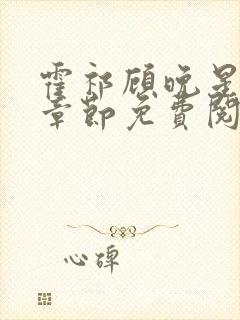 霍祁顾晚星
章节免费阅
心碑